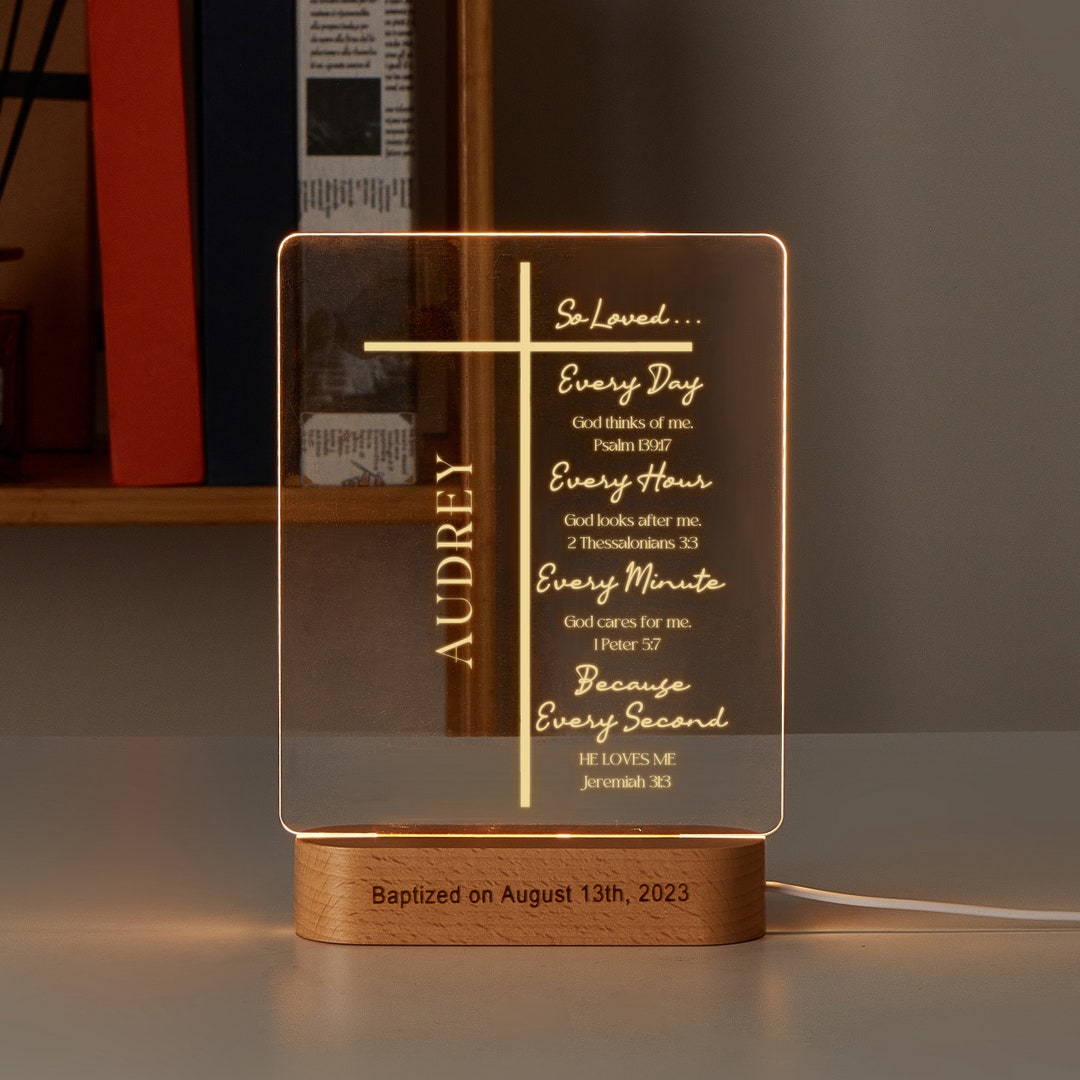 So Loved...
Every Day
God thinks of me.
Psalm 139:17
Every Hour
God looks after me.
2 Thessalonians 3:3
Every Minute
God cares for me.
1 Peter 5:7
Because
Every Second
HE LOVES ME
Jeremiah 31:3
AUDREY
Baptized on August 13th, 2023